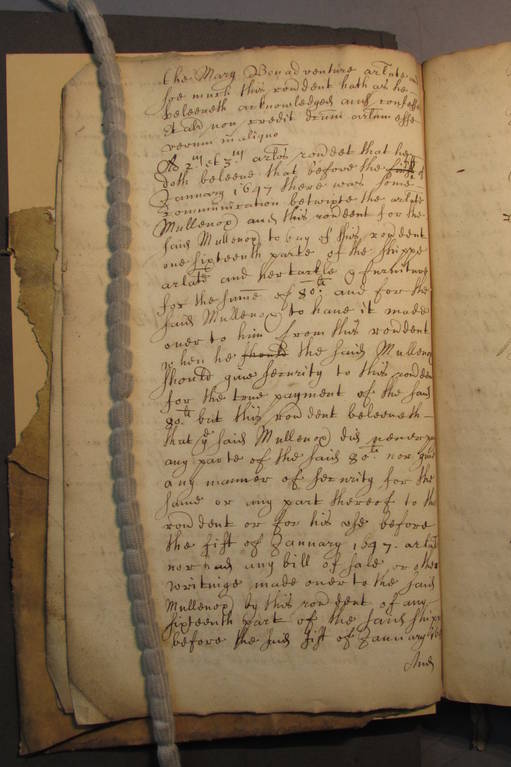 the Mary Bonadventure arlate and
soe much this rondent hath as he
beleeveth acknowledged and confesse
et als non credit dictum artlum esse
verum in aliquo
Ad 2um et 3um artlos rondet that hee
doth beleeve that before the first of
January 1647 there was some
communication betwixte the arlate
Mullenox and this rondent for the
said Mullenox to buy of this rondent
one sixteenth parte of the shippe
arlate and her tackle & furniture
for the summe of 80li and for the
said Mullenox to have it made
over to him from this rondent
when he should the said Mullenox
should give security to this rondent
for the true payment of the said
80li but this rondent beleeveth
that ye said Mullenox did never pay
any parte of the said 80li nor give
any manner of security for the
same or any part thereof to this
rondent or for his use before
the fist of January 1647 arlate
nor had any bill of sale or other
writeinge made over to the said
Mullenox by this rondent of any
sixteenth part of the said shipp
before the said fist of January
And